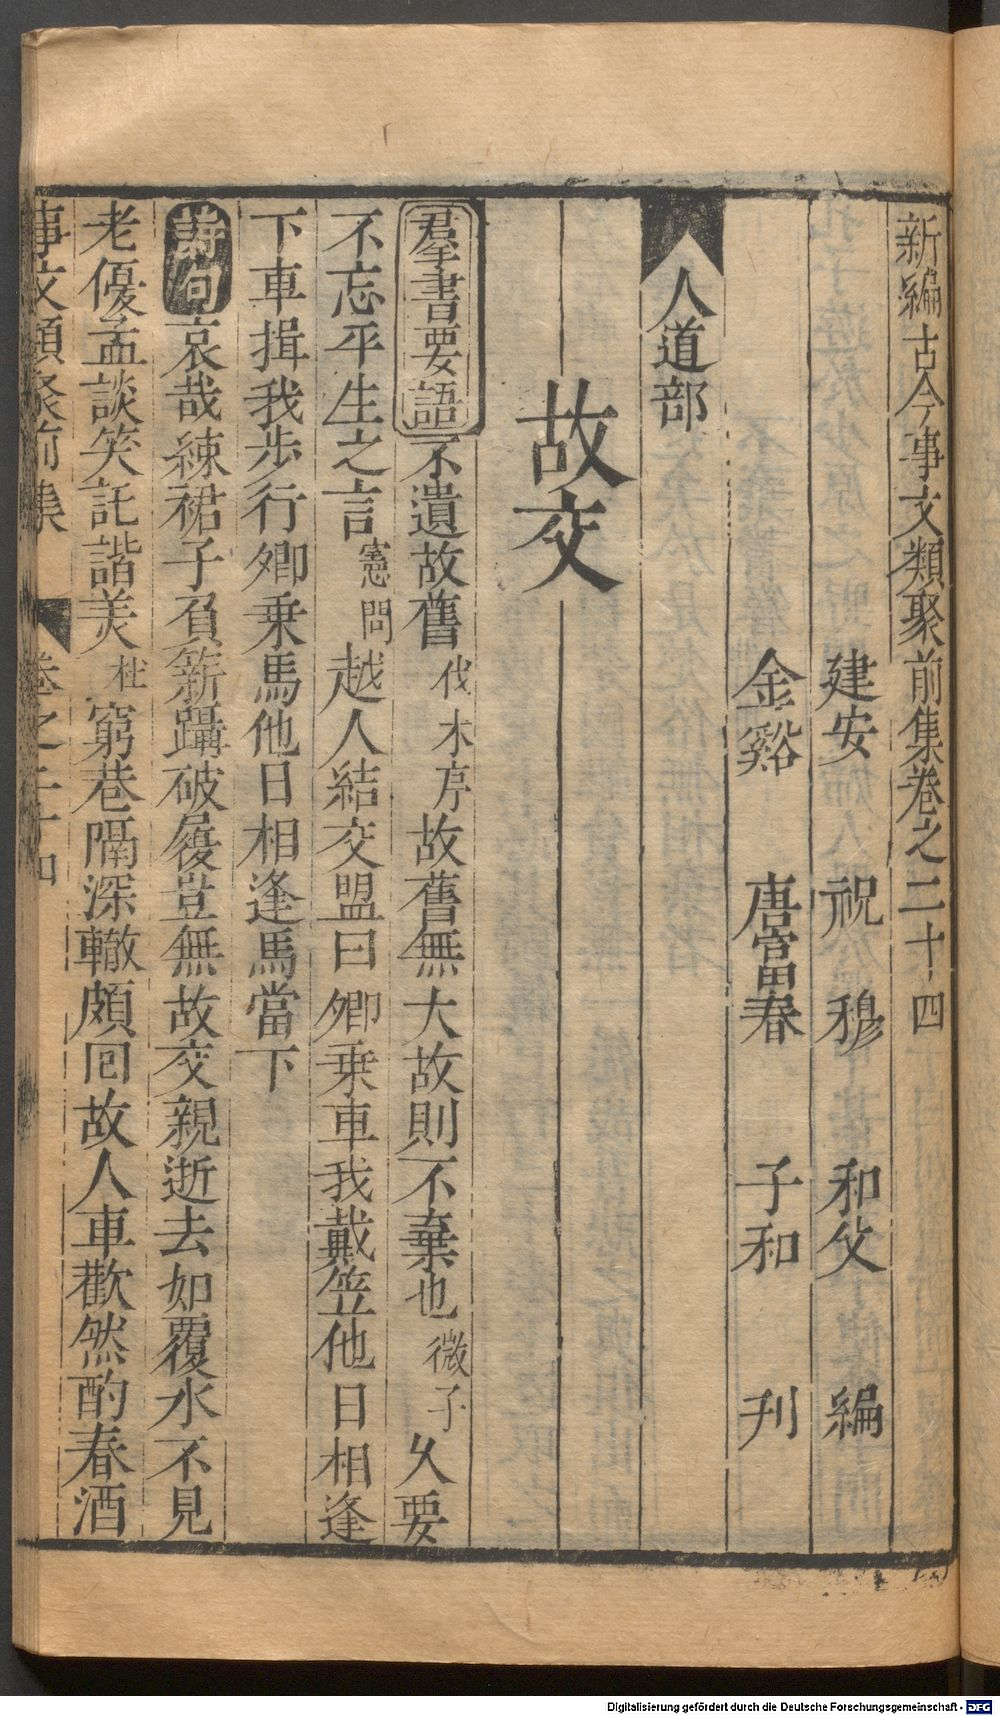 新編古今事文類聚前集卷之二十四
建安 祝 穆 和父 編
金谿 唐富春 子和 刋
人道部
故交
羣書要語不遺故舊伐木序故舊無大故則不棄也微子久要
不忘平生之言憲問越人結交盟曰卿乗車我戴笠他日相逢
下車揖我步行卿乗馬他日相逢馬當下
詩句哀哉練裙子負薪躡破履豈無故交親逝去如覆水不見
老優孟談笑託諧美杜窮巷隔深轍頗囘故人車歡然酌春酒
事文類聚前集 卷之二十四
Digitalisierung gefördert durch die Deutsche Forschungsgemeinschaft - DFG